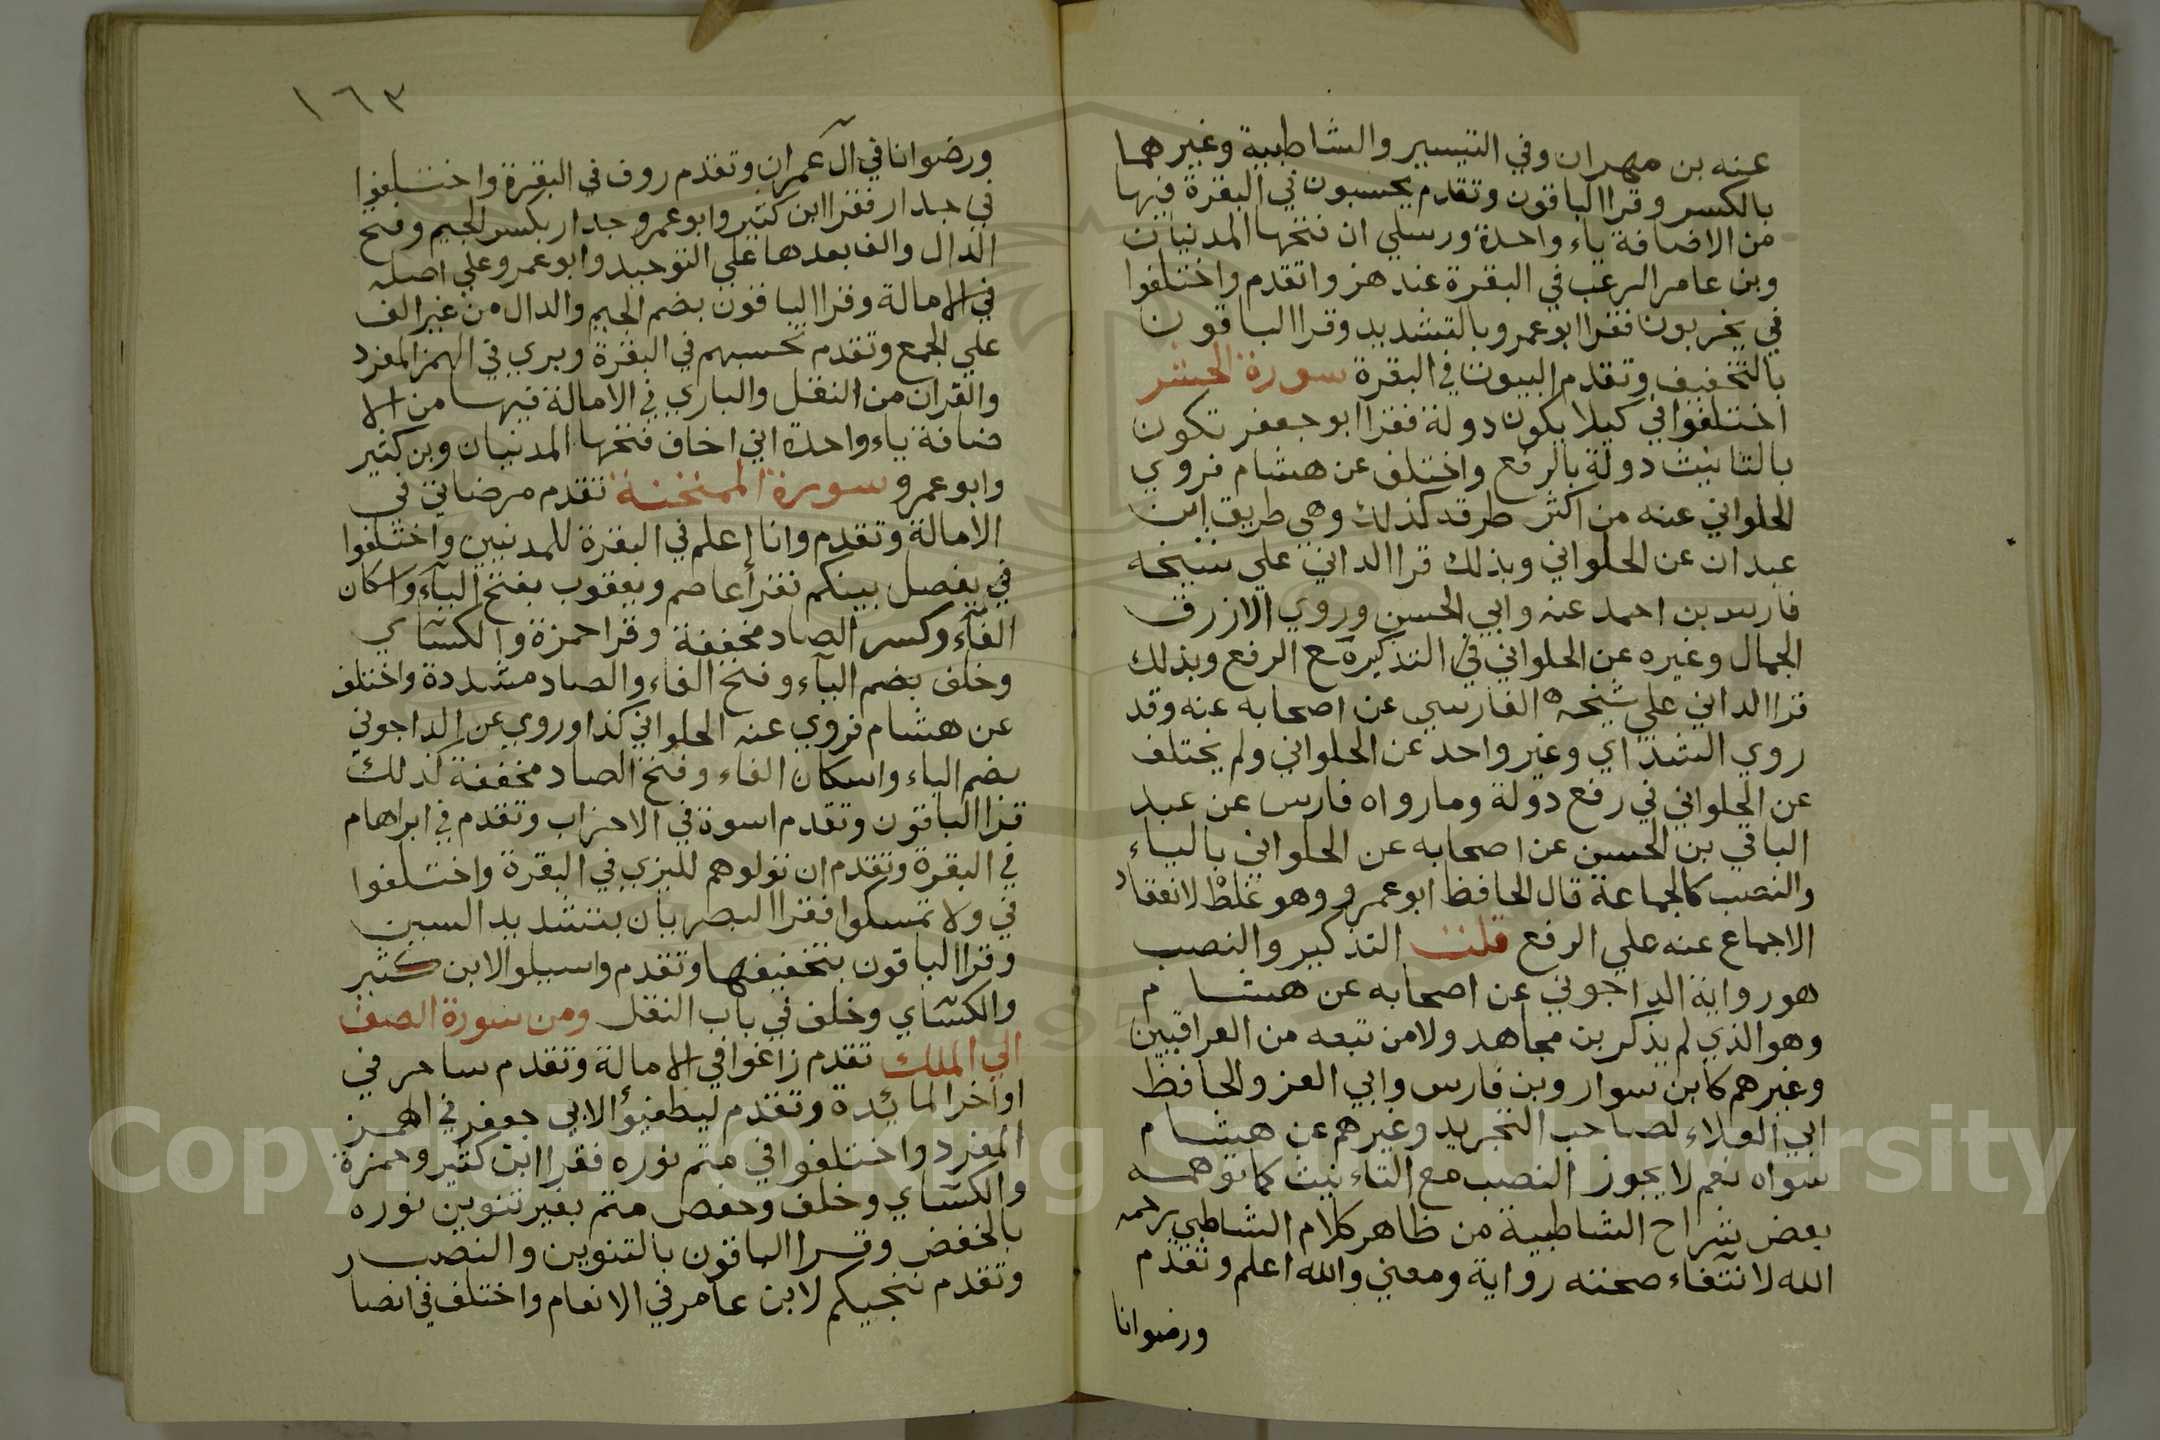 عنه بن مهران وفي التيسير والشاطبية وغيرهما
بالكسر وقرا الباقون وتقدم يحسبون في البقرة فيها
من الاضافة ياء واحدة ورسلي ان فتحها المدنيان
وبن عامر الرعب في البقرة عند هزوا تقدم واختلفوا
في يخربون فقرا ابوعمرو بالتشديد وقرا الباقون
بالتخفيف وتقدم البيوت في البقرة سورة الحشر
اختلفوا في كيلا يكون دولة فقرا ابو جعفر تكون
بالتانيث دولة بالرفع واختلف عن هشام فروي
الحلواني عنه من اكثر طرقه كذلك وهي طريق ابن
عبدان عن الحلواني وبذلك قرا الداني علي شيخه
فارس بن احمد عنه وابي الحسن وروي الازرق
الجمال وغيره عن الحلواني في التذكير مع الرفع وبذلك
قرا الداني علي شيخه الفارسي عن اصحابه عنه وقد
روي الشذاي وغير واحد عن الحلواني ولم يختلف
عن الحلواني في رفع دولة وما رواه فارس عن عبد
الباقي بن الحسين عن اصحابه عن الحلواني بالياء
والنصب كالجماعة قال الحافظ ابو عمرو وهو غلط لانعقاد
الاجماع عنه علي الرفع قلت التذكير والنصب
هو رواية الداجوني عن اصحابه عن هشام
وهو الذي لم يذكر بن مجاهد ولا من تبعه من العراقيين
وغيرهم كابن سوار وبن فارس وابي العز والحافظ
ابي العلاء لصاحب التجريد وغيرهم عن هشام
سواه نعم لا يجوز النصب مع التاءنيث كما توهمه
بعض شراح الشاطبية من ظاهر كلام الشاطبي رحمه
الله لانتفاء صحته رواية ومعني والله اعلم وتقدم
ورضوانا
١٦٣
ورضوانا في آل عمران وتقدم روف في البقرة واختلفوا
في جدار فقرا ابن كثير وابوعمرو جدار بكسر الجيم وفتح
الدال والف بعدها علي التوحيد وابوعمرو علي اصله
في الامالة وقرا الباقون بضم الجيم والدال من غير الف
علي الجمع وتقدم تحسبهم في البقرة وبري في الهمز المفرد
والقران من النقل والباري في الامالة فيها من الا
ضافة ياء واحدة اني اخاف فتحها المدنيان وبن كثير
وابوعمرو سورة الممتحنة تقدم مرضاتي في
الامالة وتقدم وانا إعلم في البقرة للمدنيين واختلفوا
في يفصل بينكم فقرا عاصم ويعقوب بفتح اليآء واسكان
الفآء وكسر الصاد مخففة وقرا حمزة والكسآي
وخلف بضم اليآء وفتح الفاء والصاد مشددة واختلف
عن هشام فروي عنه الحلواني كذا وروي عن الداجوني
بضم الياء واسكان الفاء وفتح الصاد مخففة كذلك
قرا الباقون وتقدم اسوة في الاحزاب وتقدم في ابراهام
في البقرة وتقدم ان تولوهم للبزي في البقرة واختلفوا
في ولا تمسكوا فقرا البصريان بتشديد السين
وقرا الباقون بتخفيفها وتقدم واسيلوا لابن كثير
والكسآي وخلف في باب النقل ومن سورة الصف
الي الملك تقدم زاغوا في الامالة وتقدم ساحر في
اواخر المائدة وتقدم ليطفيؤا لابي جعفر في الهمز
المفرد واختلفوا في متم نوره فقرا ابن كثير وحمزة
والكسآي وخلف وحفص متم بغير تنوين نوره
بالخفض وقرا الباقون بالتنوين والنصب
وتقدم ننجيكم لابن عامر في الانعام واختلف في انصار
Copyright © King Saud University
1957